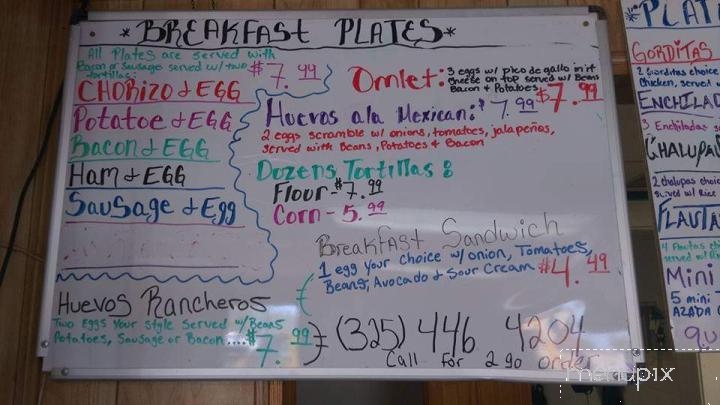 *BREAKFAST PLATES*
All Plates are served with
Bacon or Sausage served w/ two
tortillas: $7.99
CHORIZO & EGG
Potatoe & EGG
Bacon & EGG
Ham & EGG
Sausage & Egg
Huevos Rancheros
Two Eggs Your style Served w/ Beans
Potatoes, Sausage or Bacon.... $7.99
Omlet: 3 eggs w/ pico de gallo in it
cheese on top served w/ Beans
Bacon & Potatoes $7.99
Huevos ala Mexican: $7.99
2 eggs scramble w/ onions, tomatoes, jalapeños,
served with Beans, Potatoes & Bacon
Dozens Tortillas:
Flour - $7.99
Corn - 5.99
Breakfast Sandwich
1 egg your choice w/ onion, Tomatoes,
Beans, Avocado & Sour Cream $4.49
(325) 446 4204
Call For 2 go order
*PLAT
GORDITAS
2 Gorditas choic
Chicken, served w
ENCHILAD
3 Enchiladas
CHALUPA
2 chalupas choic
served w/ Rice
FLAUTA
4 Flautas
served w/
Mini
5 mini
AZADA
menupix